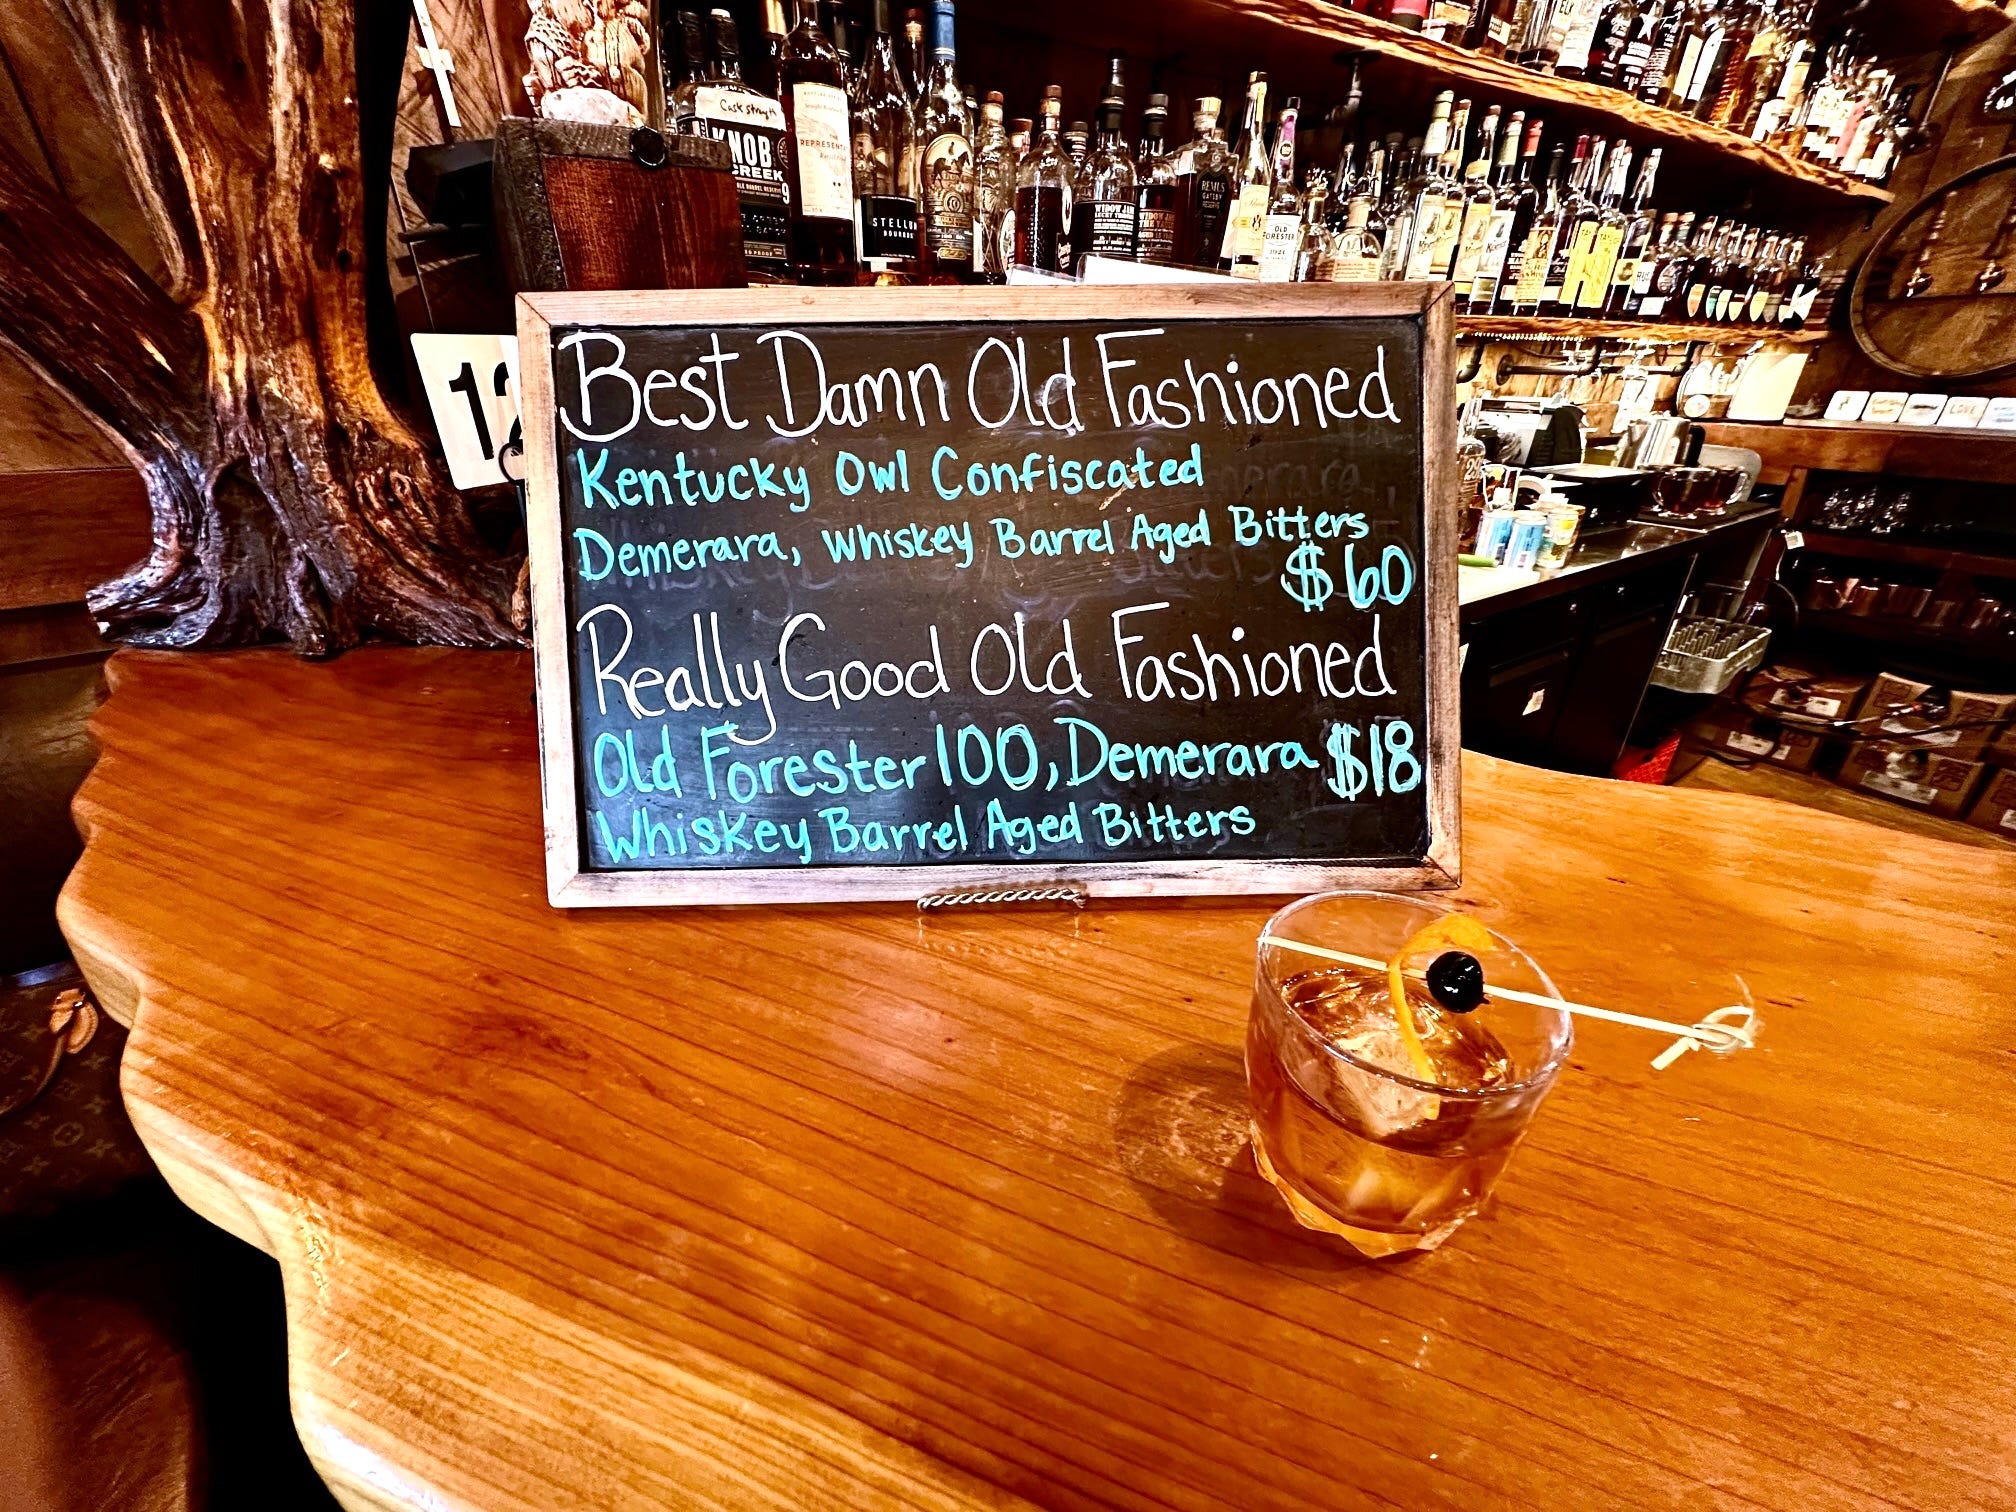 Cask strength
KNOB
CREEK
9
REPRESENTATIVE
STELLUM
BOURBON
WIDOW JANE
WIDOW JANE
REMUS
GATSBY
RESERVE
OLD
FORESTER
LOVE
12
Best Damn Old Fashioned
Kentucky Owl Confiscated
Demerara, Whiskey Barrel Aged Bitters
$60
Really Good Old Fashioned
Old Forester 100, Demerara $18
Whiskey Barrel Aged Bitters